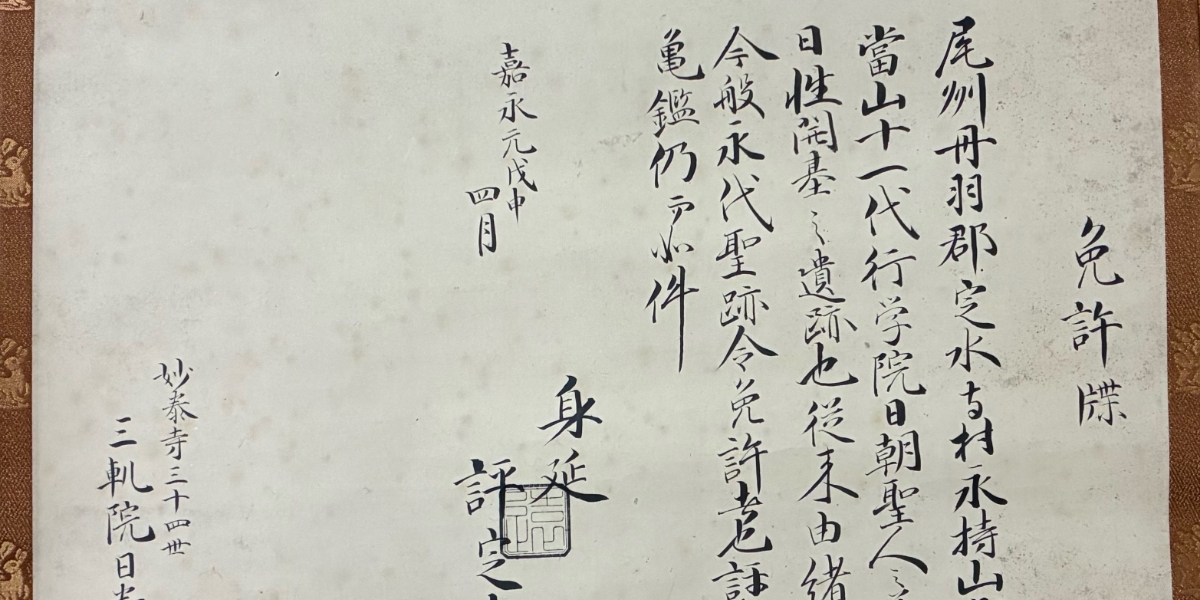 免許牒
尾州丹羽郡定水寺村永持山
當山十一代行学院日朝聖人之
日性開基之遺跡也従来由緒
今般永代聖跡令免許者也評
亀鑑仍而如件
嘉永元戊申
四月
身延
評定
妙泰寺三十四世
三軌院日